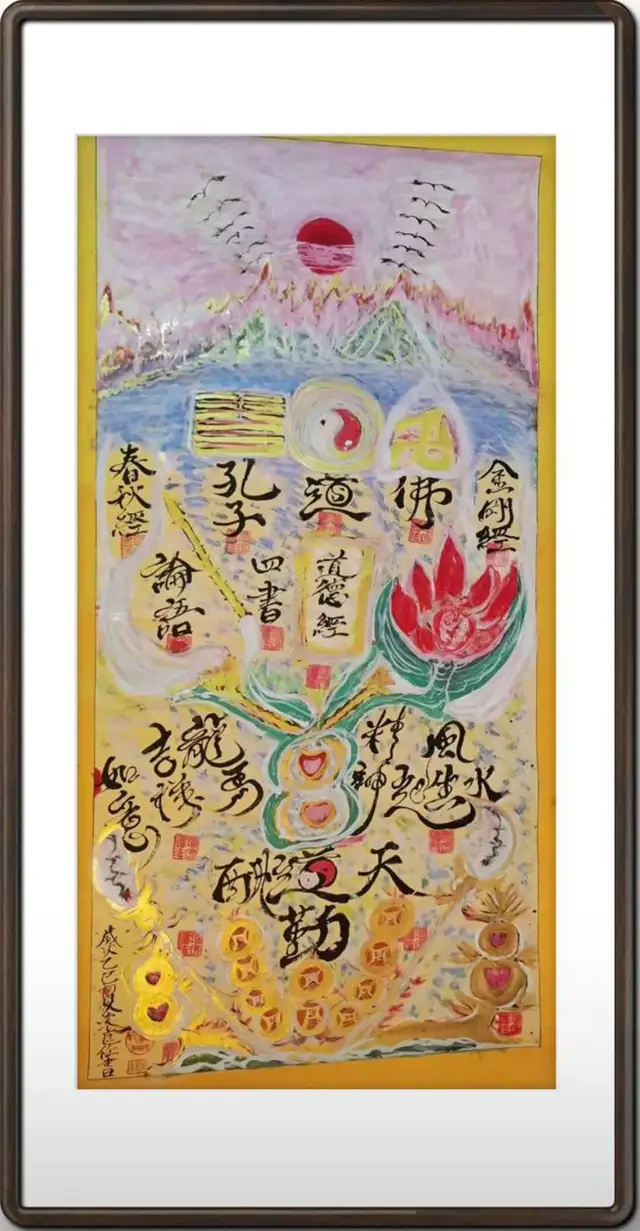 佛
道
孔子
金剛經
道德經
四書
論語
春秋經
風水
精神
龍馬
吉祥
如意
天道酬勤
歲次乙巳夏